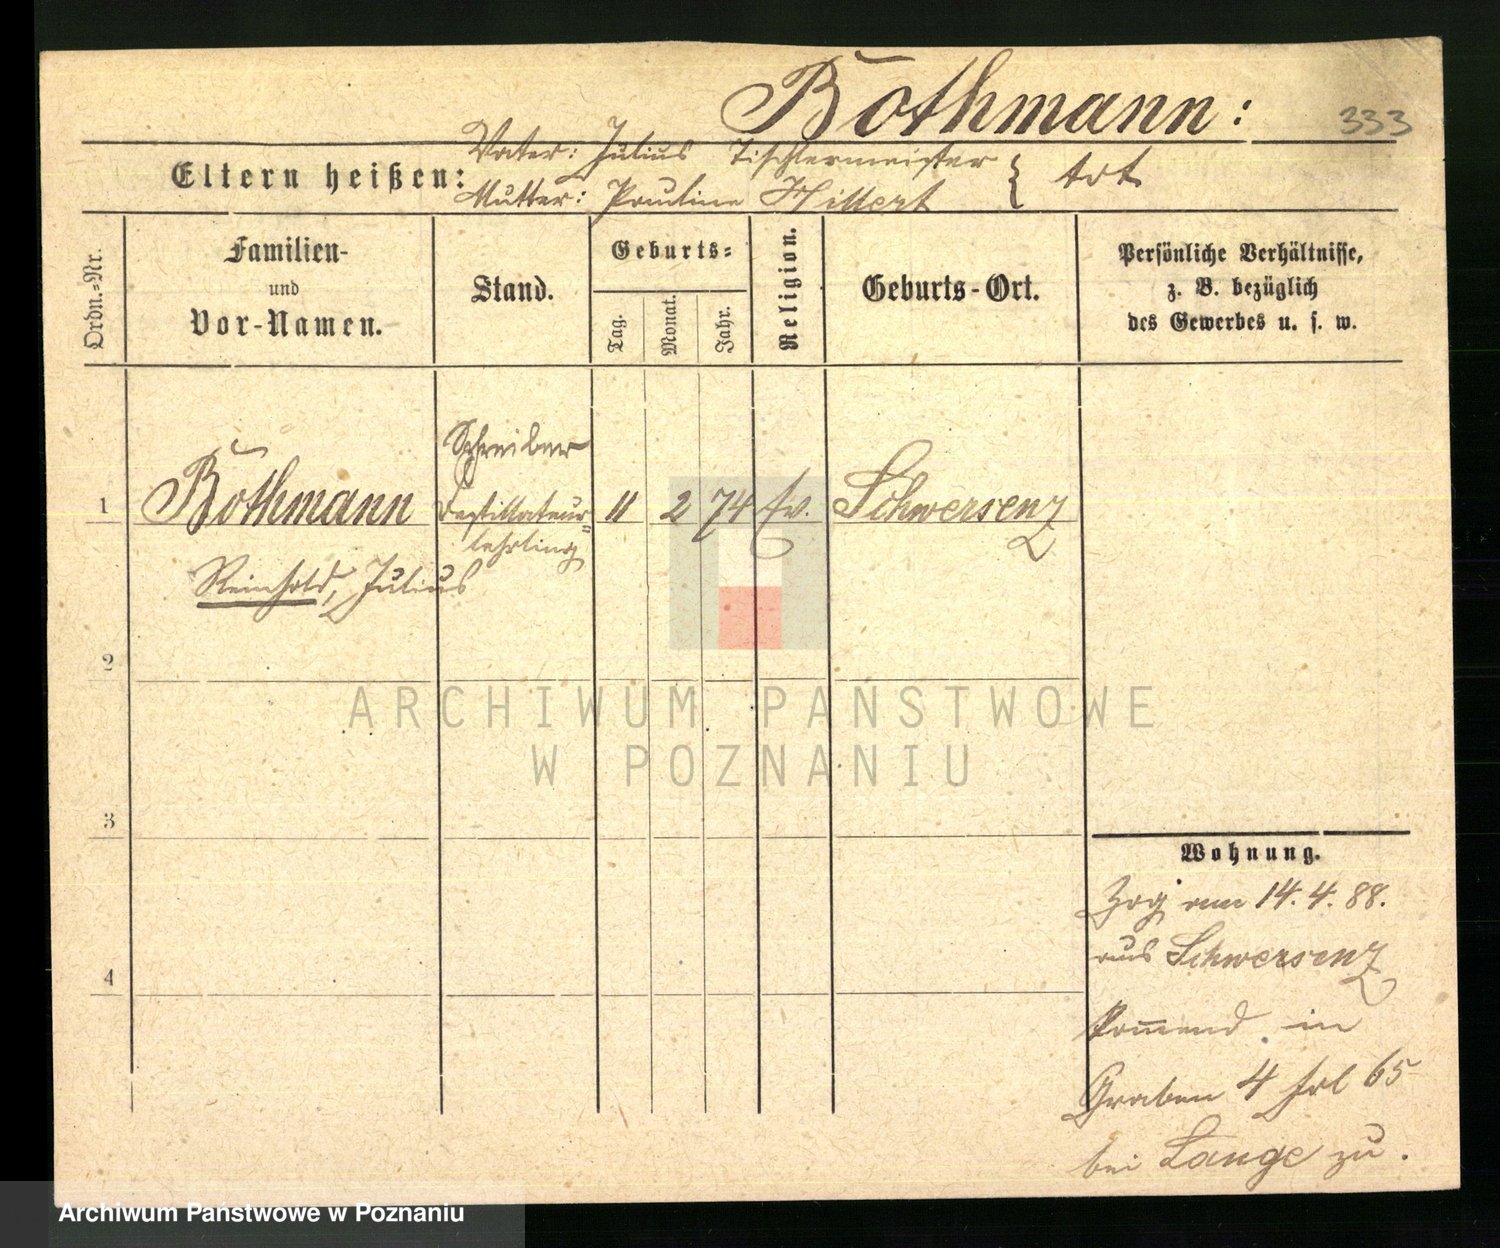 Bothmann:
333
Eltern heißen:
Vater: Julius Tischlermeister
Mutter: Pauline Hillert
} tot
Ordn.=Nr.
Familien-
und
Vor-Namen.
Stand.
Geburts=
Tag.
Monat.
Jahr.
Religion.
Geburts-Ort.
Persönliche Verhältnisse,
z. B. bezüglich
des Gewerbes u. s. w.
Schreiber
1 Bothmann Destillateur 11 2 74 ev. Schwersenz
lehrling
Reinhold, Julius
2
ARCHIWUM PAŃSTWOWE
W POZNANIU
3
Wohnung.
Zog am 14.4.88.
aus Schwersenz
4
kommend in
Graben 4 65
bei Lange zu.
Archiwum Państwowe w Poznaniu